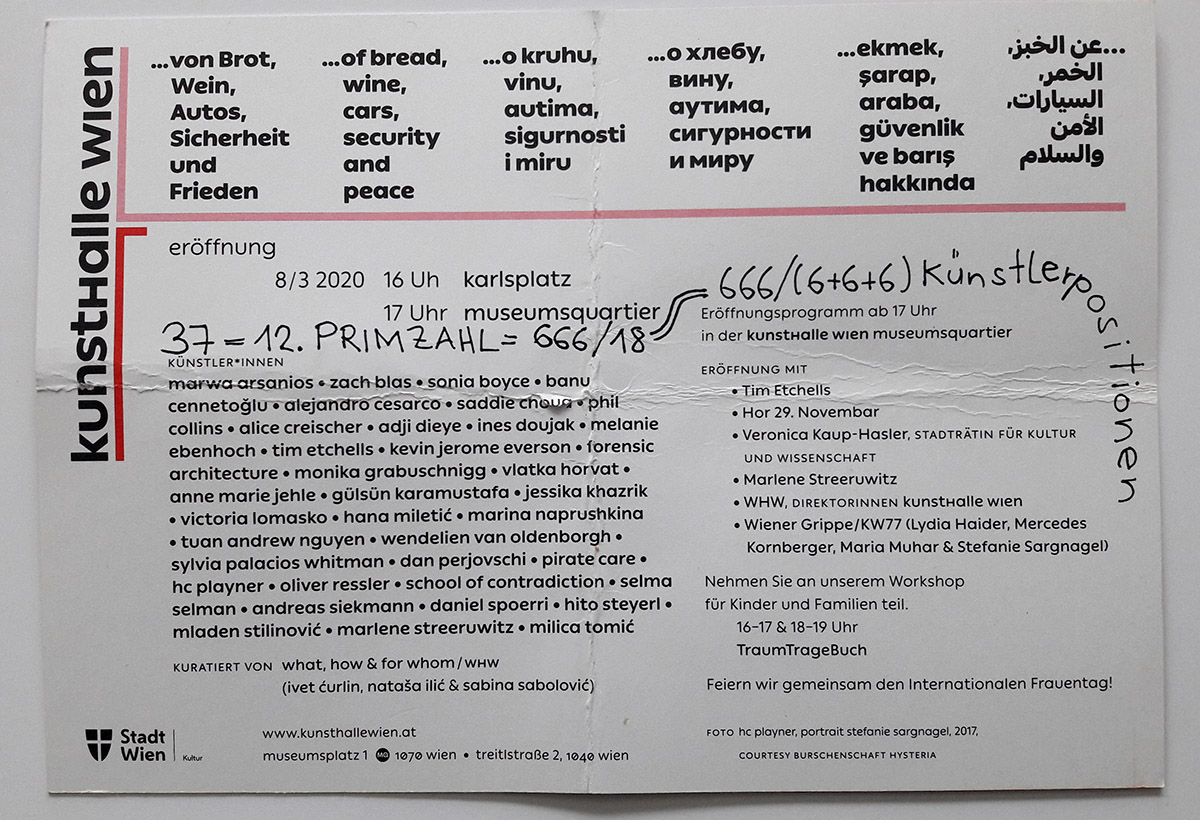 kunsthalle wien
...von Brot,
Wein,
Autos,
Sicherheit
und
Frieden
...of bread,
wine,
cars,
security
and
peace
...o kruhu,
vinu,
autima,
sigurnosti
i miru
...о хлебу,
вину,
аутима,
сигурности
и миру
...ekmek,
şarap,
araba,
güvenlik
ve barış
hakkında
...عن الخبز،
الخمر،
السيارات،
الأمن
والسلام
eröffnung
8/3 2020 16 Uh karlsplatz
17 Uhr museumsquartier
37 = 12. PRIMZAHL = 666/18
666/(6+6+6) Künstlerpositionen
KÜNSTLER*INNEN
marwa arsanios • zach blas • sonia boyce • banu
cennetoğlu • alejandro cesarco • saddie choua • phil
collins • alice creischer • adji dieye • ines doujak • melanie
ebenhoch • tim etchells • kevin jerome everson • forensic
architecture • monika grabuschnigg • vlatka horvat •
anne marie jehle • gülsün karamustafa • jessika khazrik
• victoria lomasko • hana miletić • marina naprushkina
• tuan andrew nguyen • wendelien van oldenborgh •
sylvia palacios whitman • dan perjovschi • pirate care •
hc playner • oliver ressler • school of contradiction • selma
selman • andreas siekmann • daniel spoerri • hito steyerl •
mladen stilinović • marlene streeruwitz • milica tomić
KURATIERT VON what, how & for whom / WHW
(ivet ćurlin, nataša ilić & sabina sabolović)
Eröffnungsprogramm ab 17 Uhr
in der kunsthalle wien museumsquartier
ERÖFFNUNG MIT
• Tim Etchells
• Hor 29. Novembar
• Veronica Kaup-Hasler, STADTRÄTIN FÜR KULTUR
UND WISSENSCHAFT
• Marlene Streeruwitz
• WHW, DIREKTORINNEN kunsthalle wien
• Wiener Grippe/KW77 (Lydia Haider, Mercedes
Kornberger, Maria Muhar & Stefanie Sargnagel)
Nehmen Sie an unserem Workshop
für Kinder und Familien teil.
16–17 & 18–19 Uhr
TraumTrageBuch
Feiern wir gemeinsam den Internationalen Frauentag!
Stadt
Wien
Kultur
www.kunsthallewien.at
museumsplatz 1 MQ 1070 wien • treitlstraße 2, 1040 wien
FOTO hc playner, portrait stefanie sargnagel, 2017,
COURTESY BURSCHENSCHAFT HYSTERIA